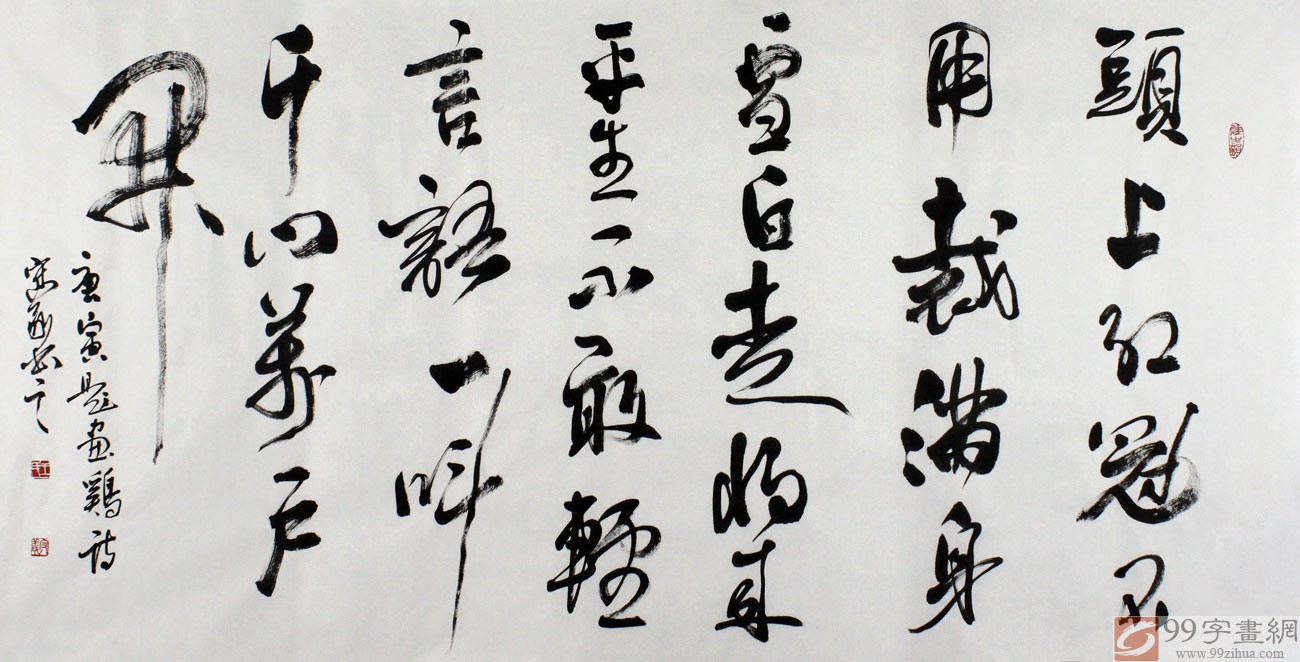 頭上紅冠不
用裁滿身
雪白走將來
平生不敢輕
言語一叫
千門萬戶
開
庚寅題畫鷄詩
99字畫網
www.99zihua.com